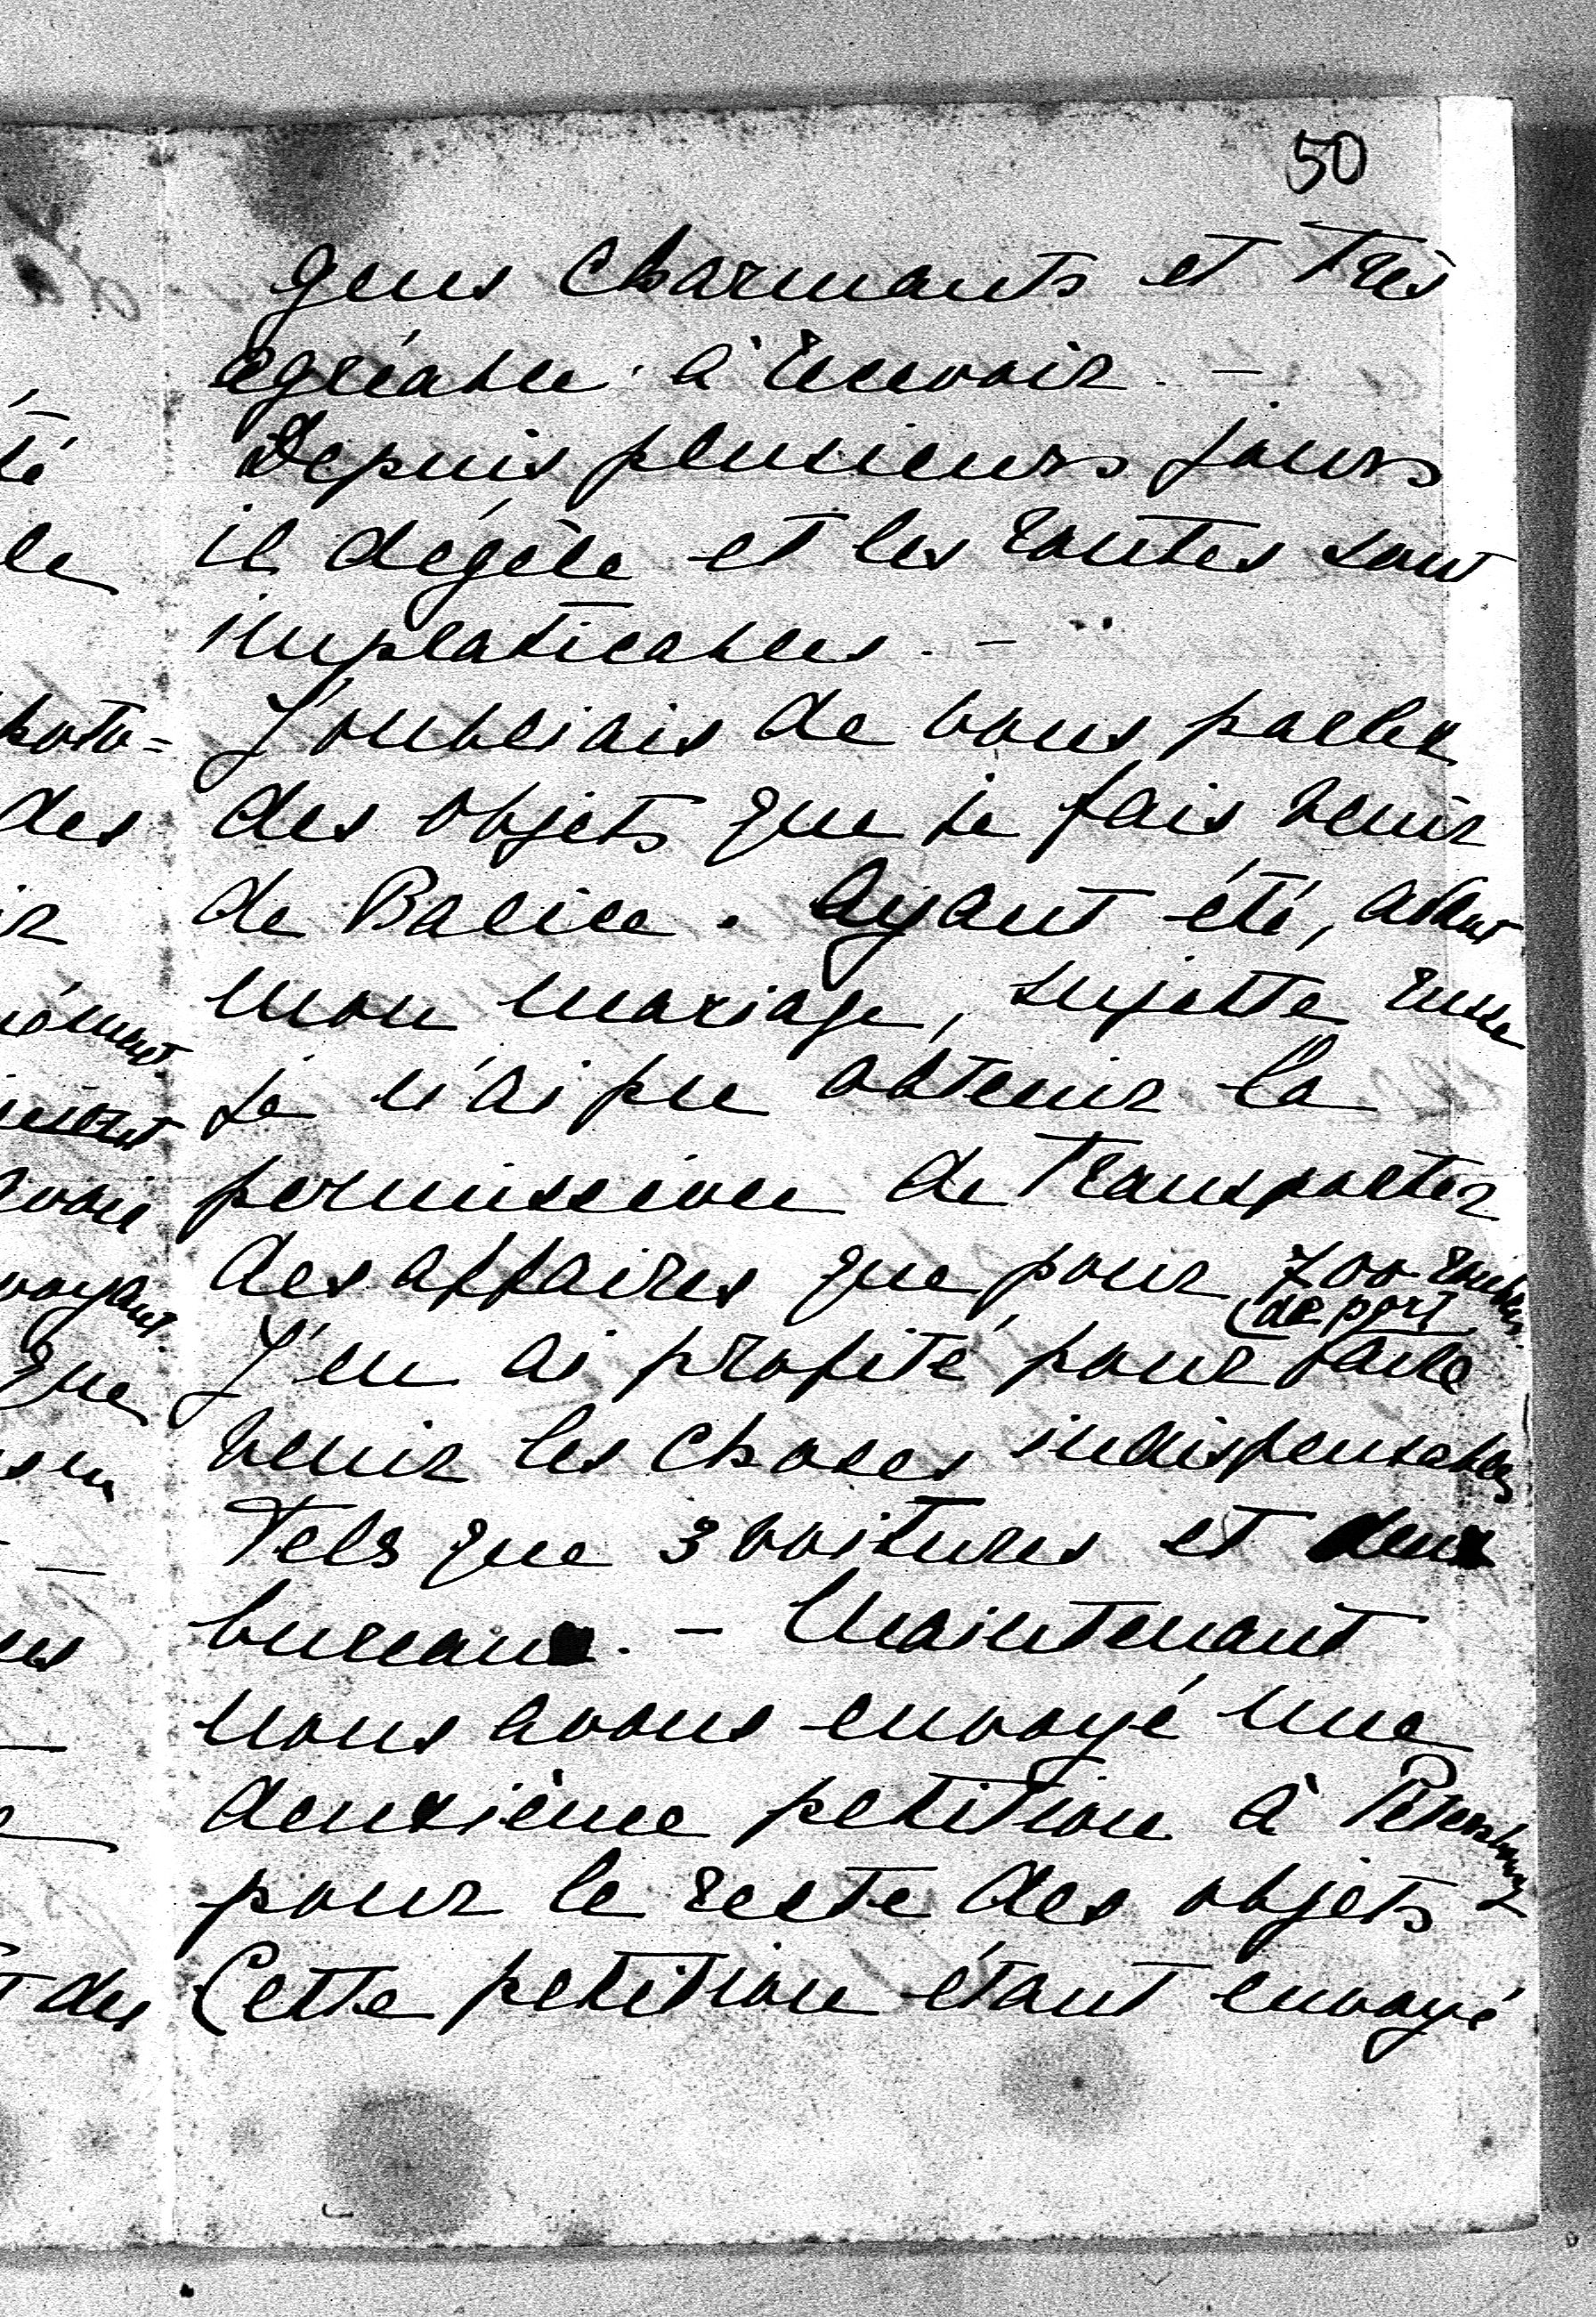 50
gens charmants et très
agréable à recevoir. —
Depuis plusieurs jours
il dégèle et les routes sont
impraticables. —
J'oubliais de vous parler
des objets que je fais venir
de Balice. Ayant été, avant
mon mariage, sujette russe
je n'ai pu obtenir la
permission de transporter
des affaires que pour 700 roubles
(de port
J'en ai profité pour faire
venir les choses indispensables
tels que 3 voitures et deux
bureaux. — Maintenant
nous avons envoyé une
deuxième petition à Petersbourg
pour le reste des objets
Cette petition étant envoyé
té
le
des
que
des